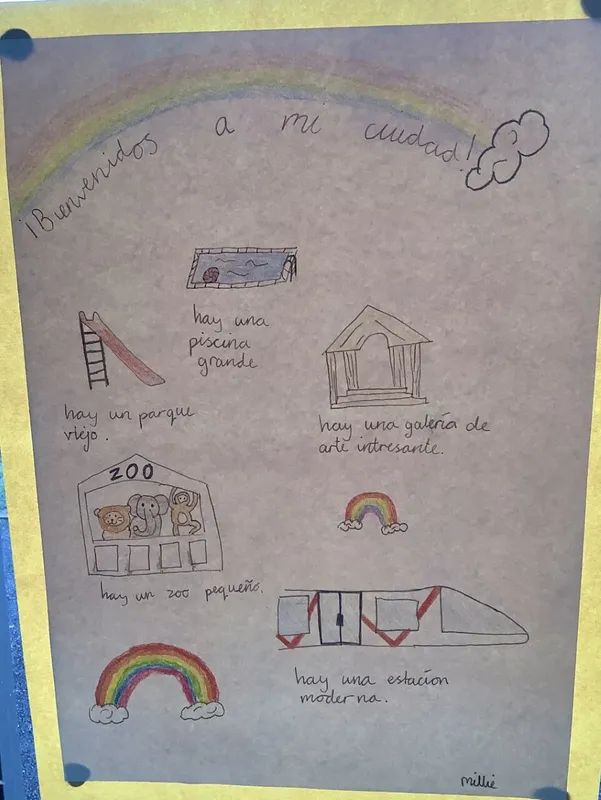 ¡Bienvenidos a mi ciudad!
hay una
piscina
grande
hay un parque
viejo.
hay una galería de
arte intresante.
ZOO
hay un zoo pequeño.
hay una estacíon
moderna.
millie